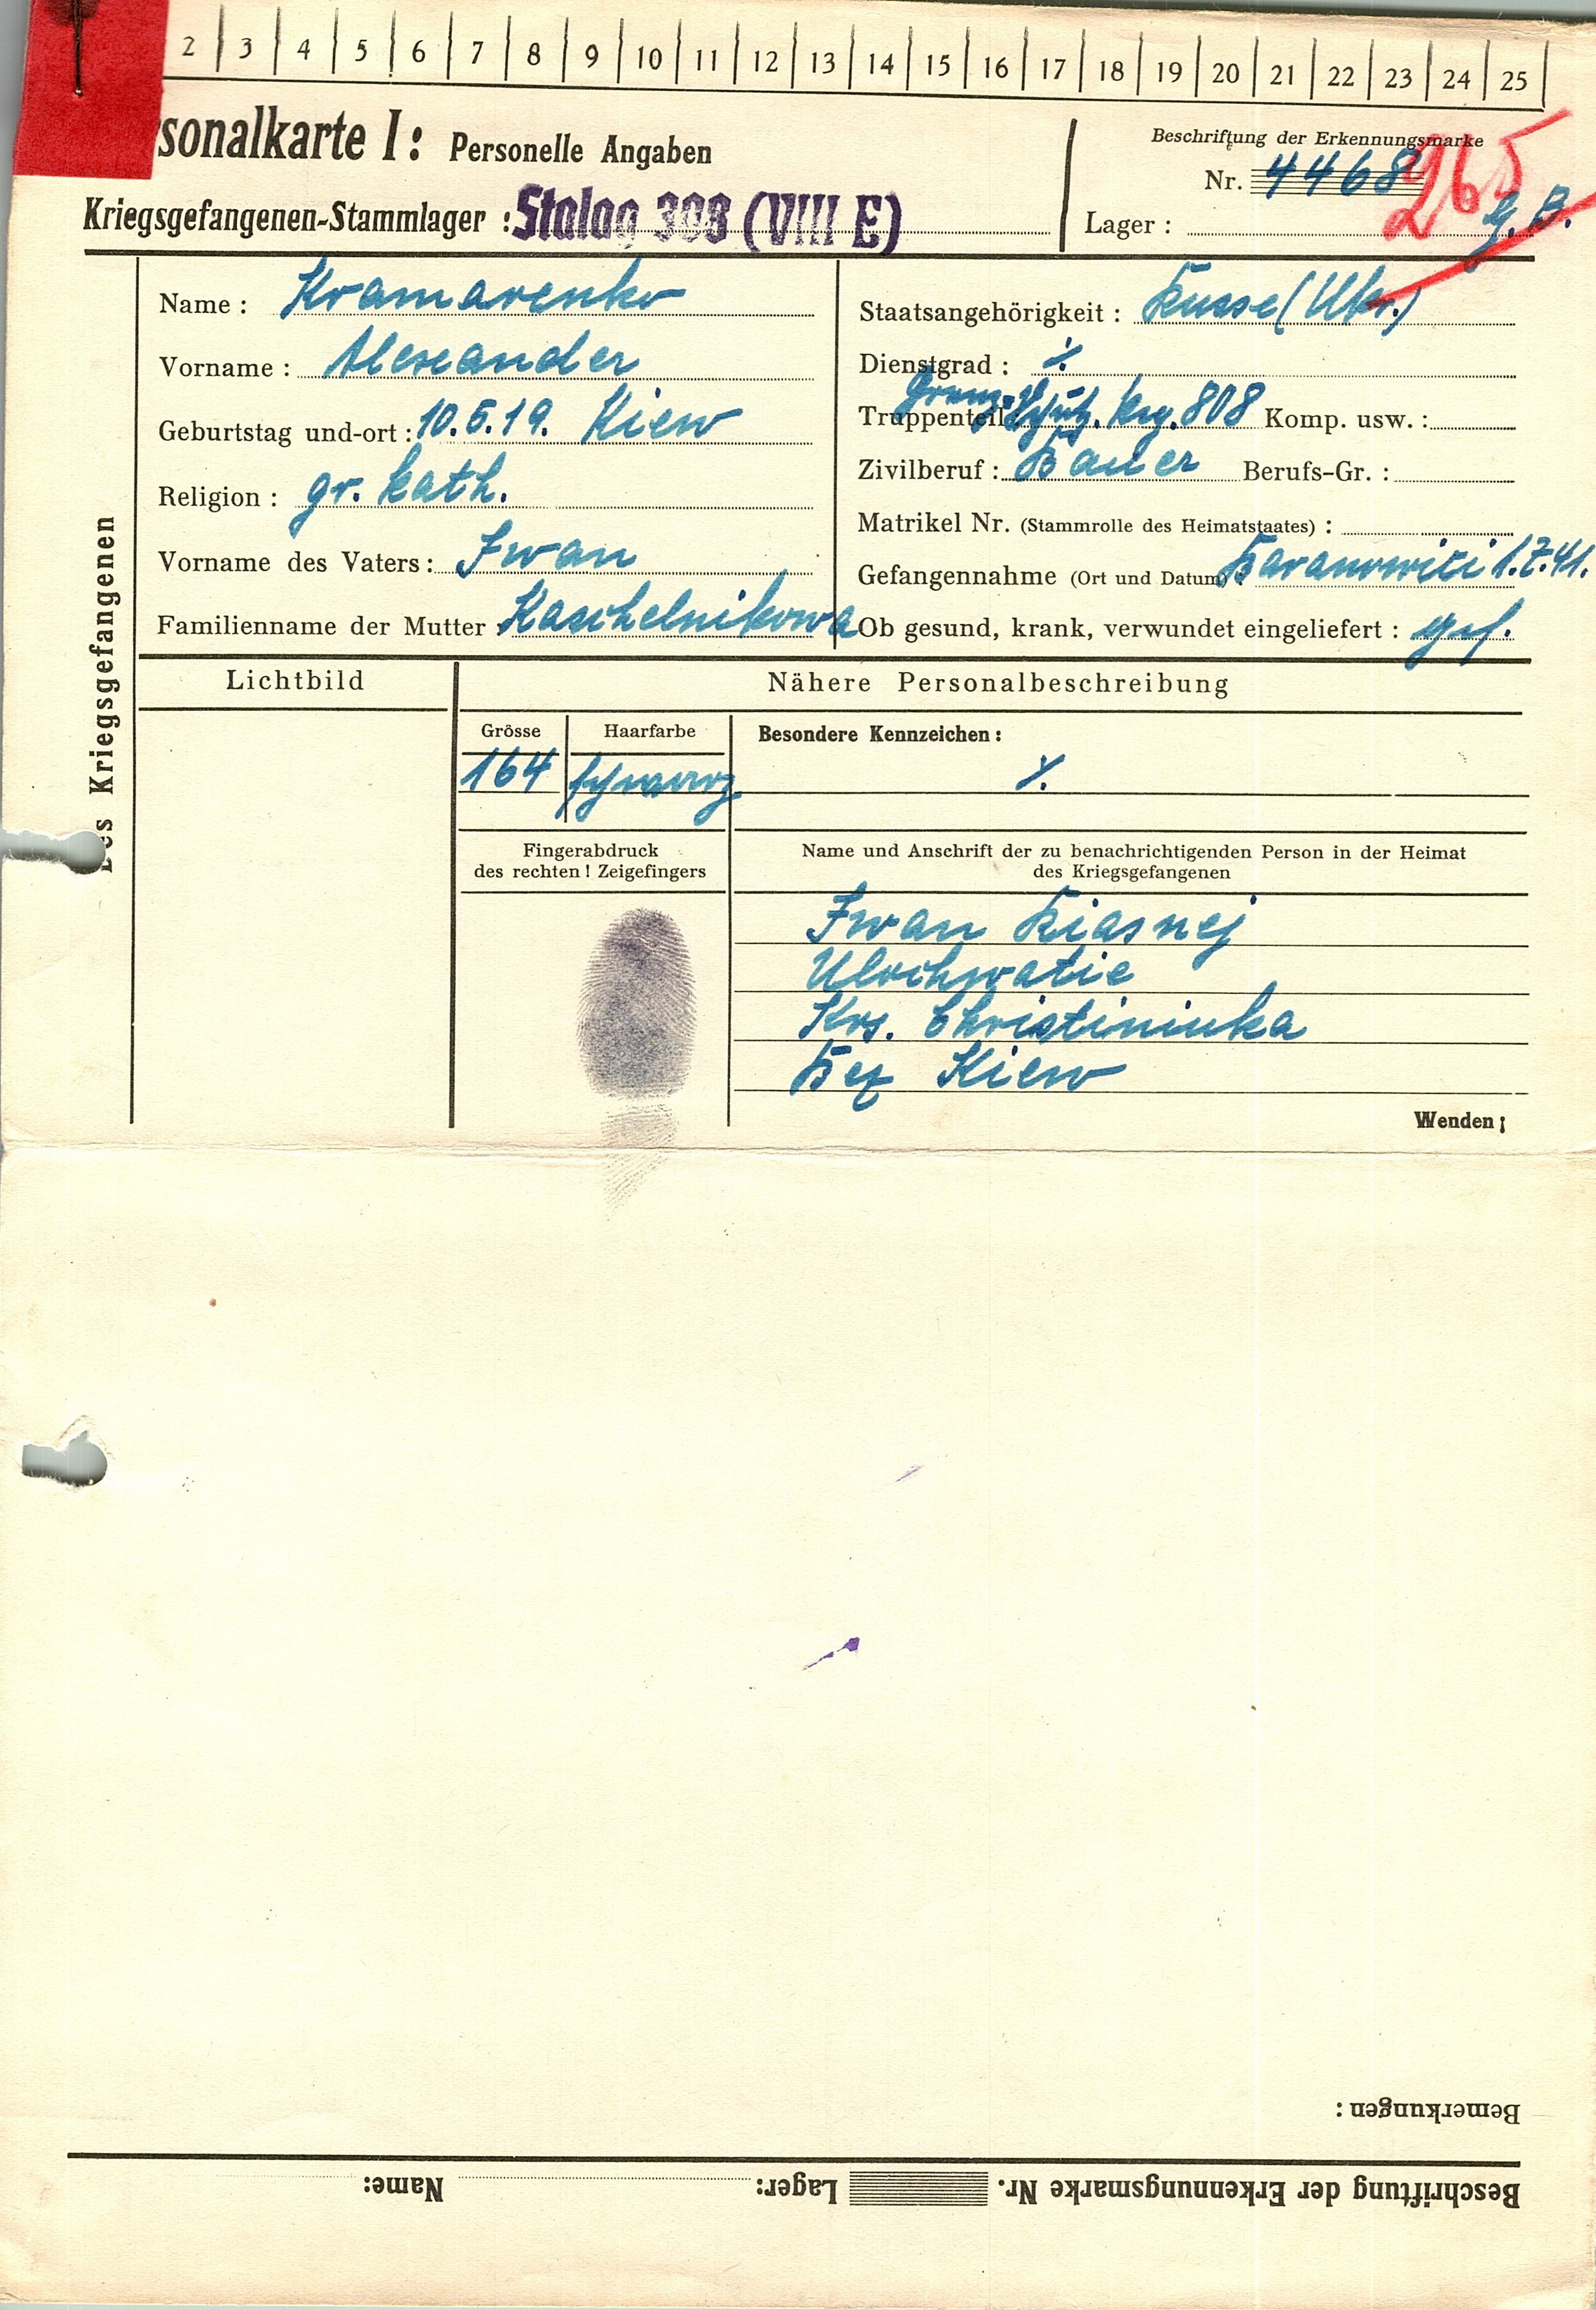 2 3 4 5 6 7 8 9 10 11 12 13 14 15 16 17 18 19 20 21 22 23 24 25
sonalkarte I: Personelle Angaben
Kriegsgefangenen-Stammlager : Stalag 308 (VIII E)
Beschriftung der Erkennungsmarke
Nr. 4468
265
Lager :
des Kriegsgefangenen
Name : Kramarenko
Vorname : Alexander
Geburtstag und-ort : 10.5.19. Kiew
Religion : gr. kath.
Vorname des Vaters : Iwan
Familienname der Mutter Kaschelnikowa
Staatsangehörigkeit : Russe (Ukr.)
Dienstgrad : ٪
Truppenteil Grenz-Schütz. Reg. 808 Komp. usw. :
Zivilberuf : Bauer Berufs-Gr. :
Matrikel Nr. (Stammrolle des Heimatstaates) :
Gefangennahme (Ort und Datum) Baranowici 1.7.41.
Ob gesund, krank, verwundet eingeliefert : gef.
Lichtbild
Nähere Personalbeschreibung
Grösse
Haarfarbe
Besondere Kennzeichen :
164 schwarz ٪
Fingerabdruck
des rechten ! Zeigefingers
Name und Anschrift der zu benachrichtigenden Person in der Heimat
des Kriegsgefangenen
Iwan Riasnej
Ulochwatie
Krs. Christiniuka
Bez Kiew
Wenden ;
Bemerkungen :
Beschriftung der Erkennungsmarke Nr. Lager: Name: